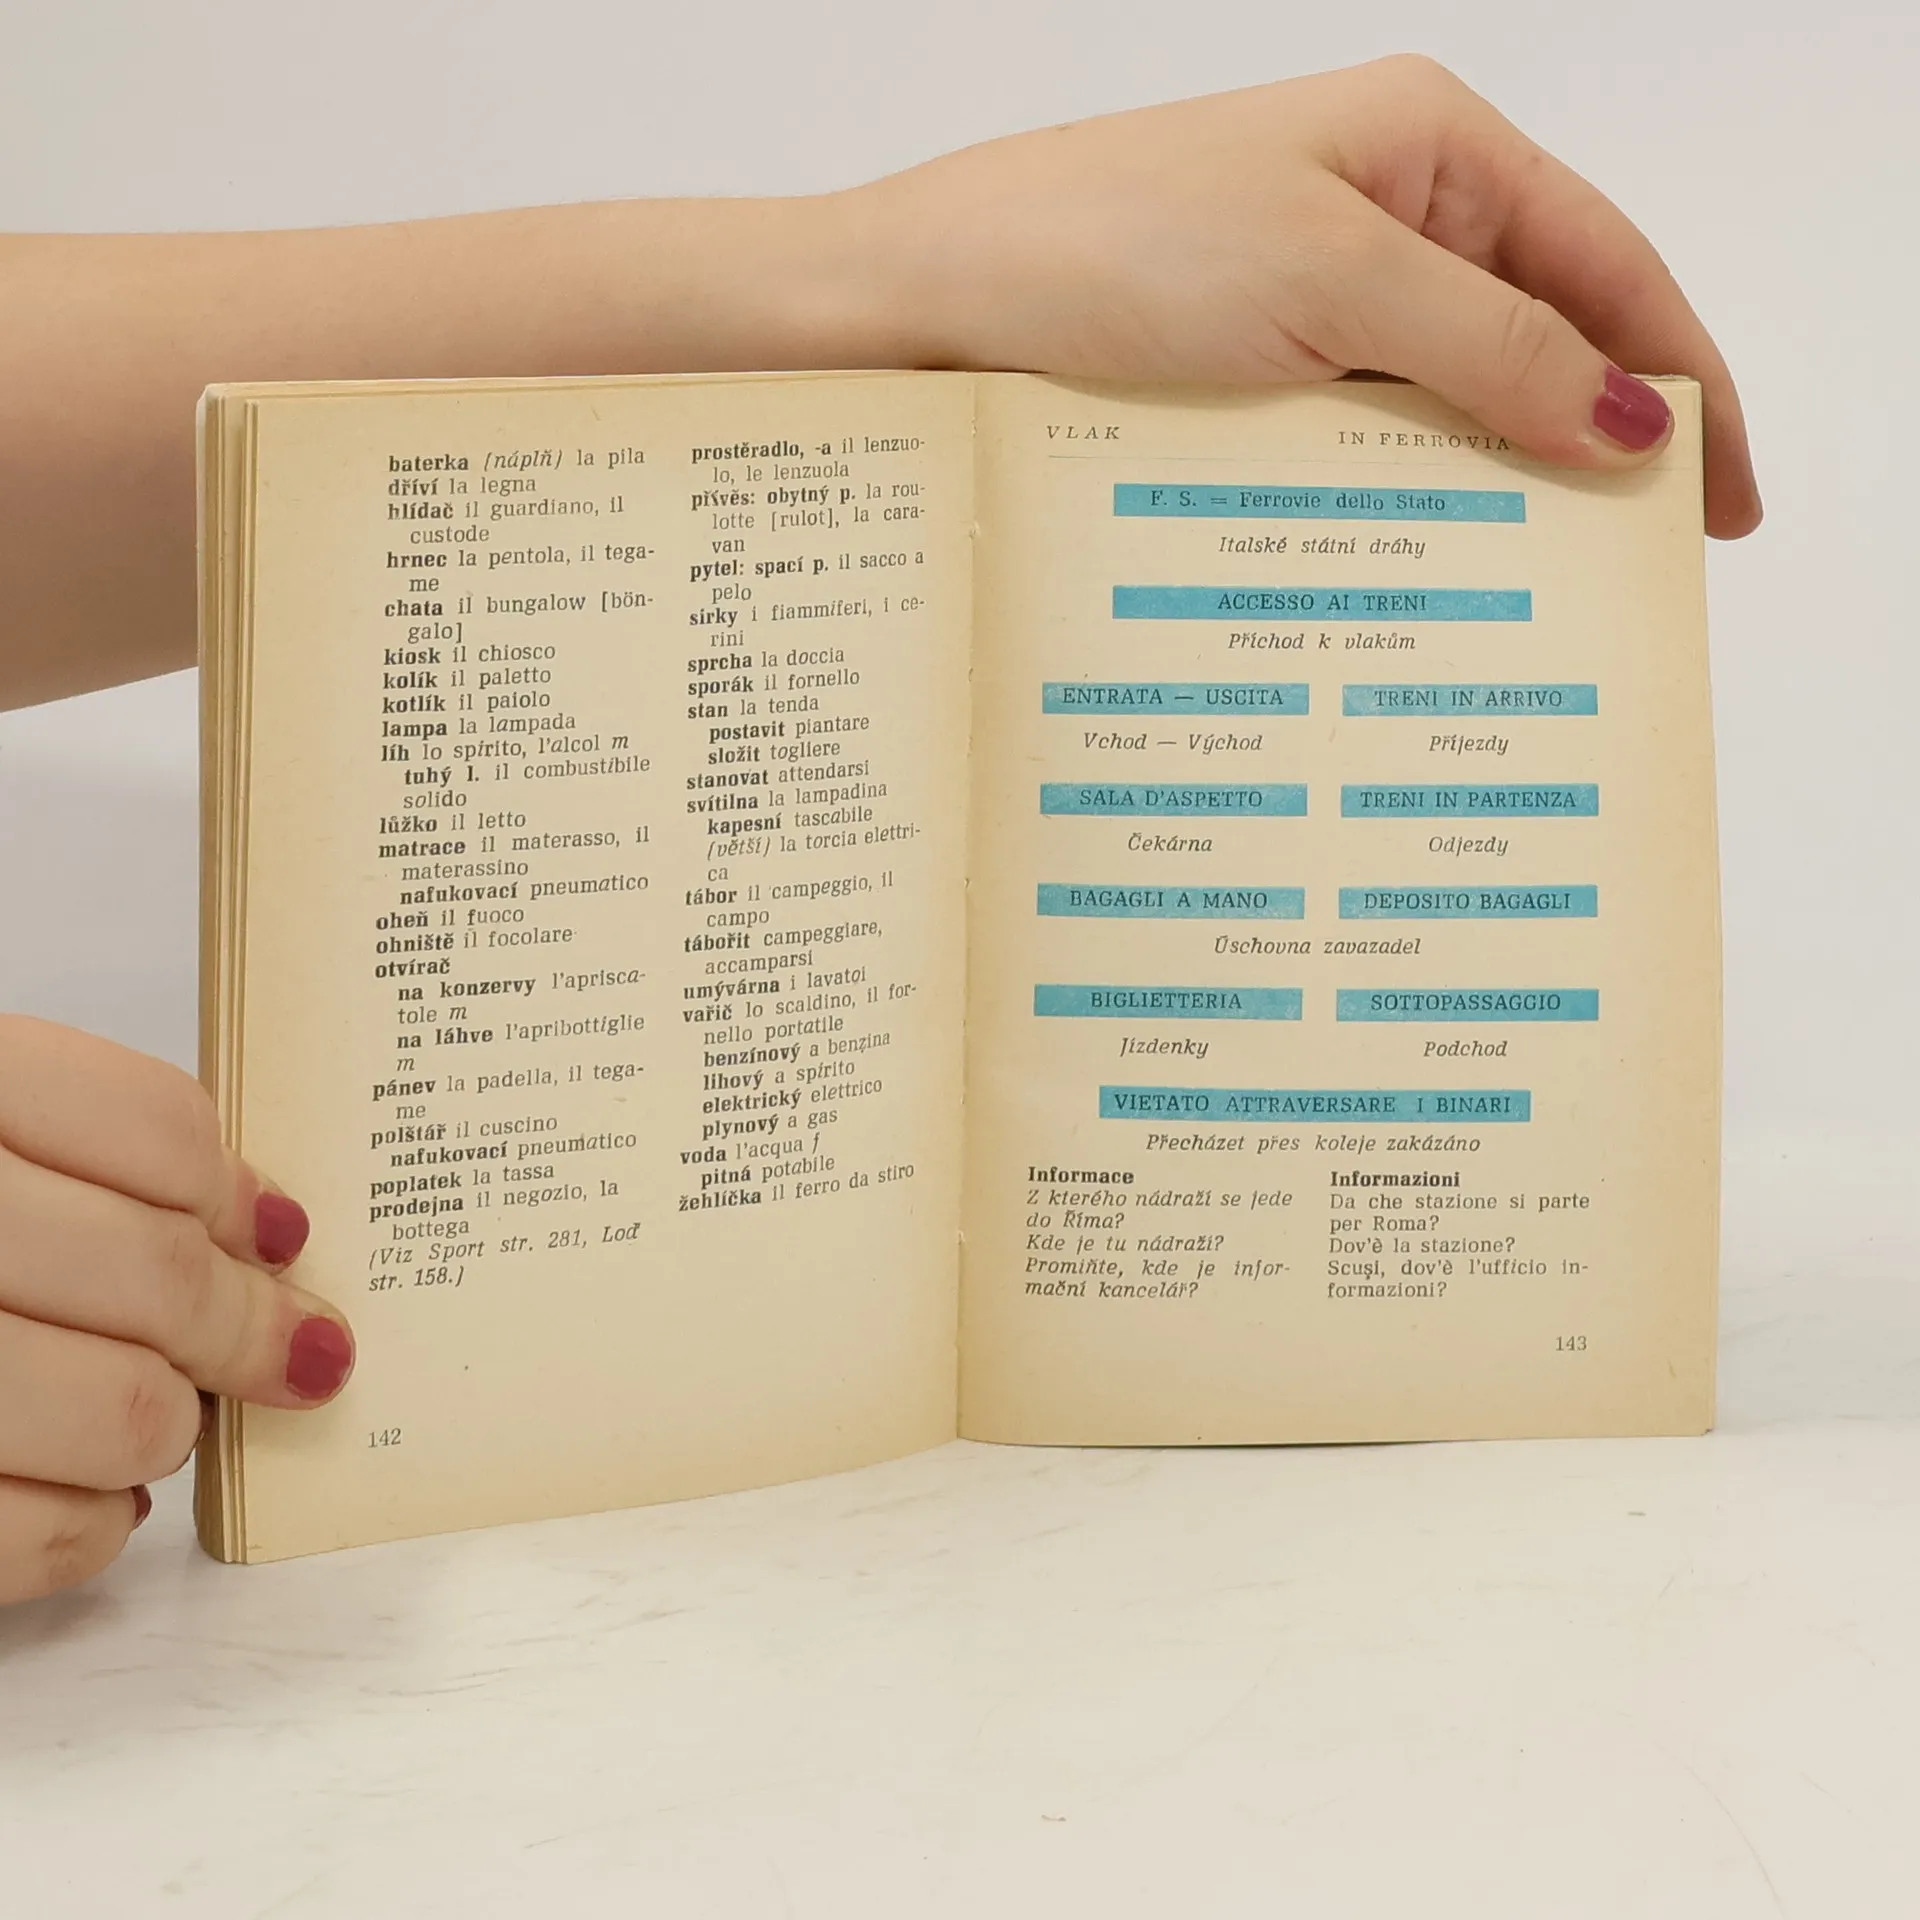 baterka (náplň) la pila
dříví la legna
hlídač il guardiano, il
custode
hrnec la pentola, il tega-
me
chata il bungalow [bön-
galo]
kiosk il chiosco
kolík il paletto
kotlík il paiolo
lampa la lampada
líh lo spírito, l'alcol m
tuhý l. il combustíbile
solido
lůžko il letto
matrace il materasso, il
materassino
nafukovací pneumatico
oheň il fuoco
ohniště il focolare
otvírač
na konzervy l'aprisca-
tole m
na láhve l'apribottíglie
m
pánev la padella, il tega-
me
polštář il cuscino
nafukovací pneumatico
poplatek la tassa
prodejna il negozio, la
bottega
(Viz Sport str. 281, Loď
str. 158.)
142
prostěradlo, -a il lenzuo-
lo, le lenzuola
přívěs: obytný p. la rou-
lotte [rulot], la cara-
van
pytel: spací p. il sacco a
pelo
sirky i fiammiferi, i ce-
rini
sprcha la doccia
sporák il fornello
stan la tenda
postavit piantare
složit togliere
stanovat attendarsi
svítilna la lampadina
kapesní tascabile
(větší) la torcia elettri-
ca
tábor il campeggio, il
campo
tábořit campeggiare,
accamparsi
umývárna i lavatoi
vařič lo scaldino, il for-
nello portatile
benzínový a benzina
lihový a spírito
elektrický elettrico
plynový a gas
voda l'acqua f
pitná potabile
žehlička il ferro da stiro
VLAK IN FERROVIA
F. S. = Ferrovie dello Stato
Italské státní dráhy
ACCESSO AI TRENI
Příchod k vlakům
ENTRATA — USCITA TRENI IN ARRIVO
Vchod — Východ Příjezdy
SALA D'ASPETTO TRENI IN PARTENZA
Čekárna Odjezdy
BAGAGLI A MANO DEPOSITO BAGAGLI
Úschovna zavazadel
BIGLIETTERIA SOTTOPASSAGGIO
Jízdenky Podchod
VIETATO ATTRAVERSARE I BINARI
Přecházet přes koleje zakázáno
Informace
Z kterého nádraží se jede
do Říma?
Kde je tu nádraží?
Promiňte, kde je infor-
mační kancelář?
Informazioni
Da che stazione si parte
per Roma?
Dov'è la stazione?
Scusi, dov'è l'ufficio in-
formazioni?
143